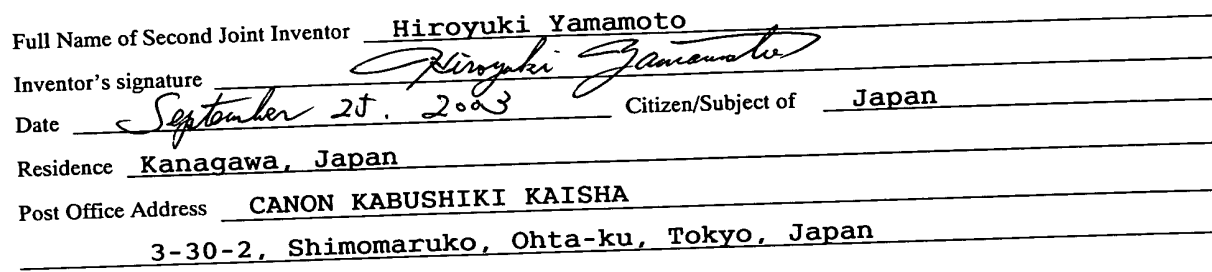 Full Name of Second Joint Inventor Hiroyuki Yamamoto
Inventor's signature Hiroyuki Yamamoto
Date September 25. 2003 Citizen/Subject of Japan
Residence Kanagawa, Japan
Post Office Address CANON KABUSHIKI KAISHA
3-30-2, Shimomaruko, Ohta-ku, Tokyo, Japan